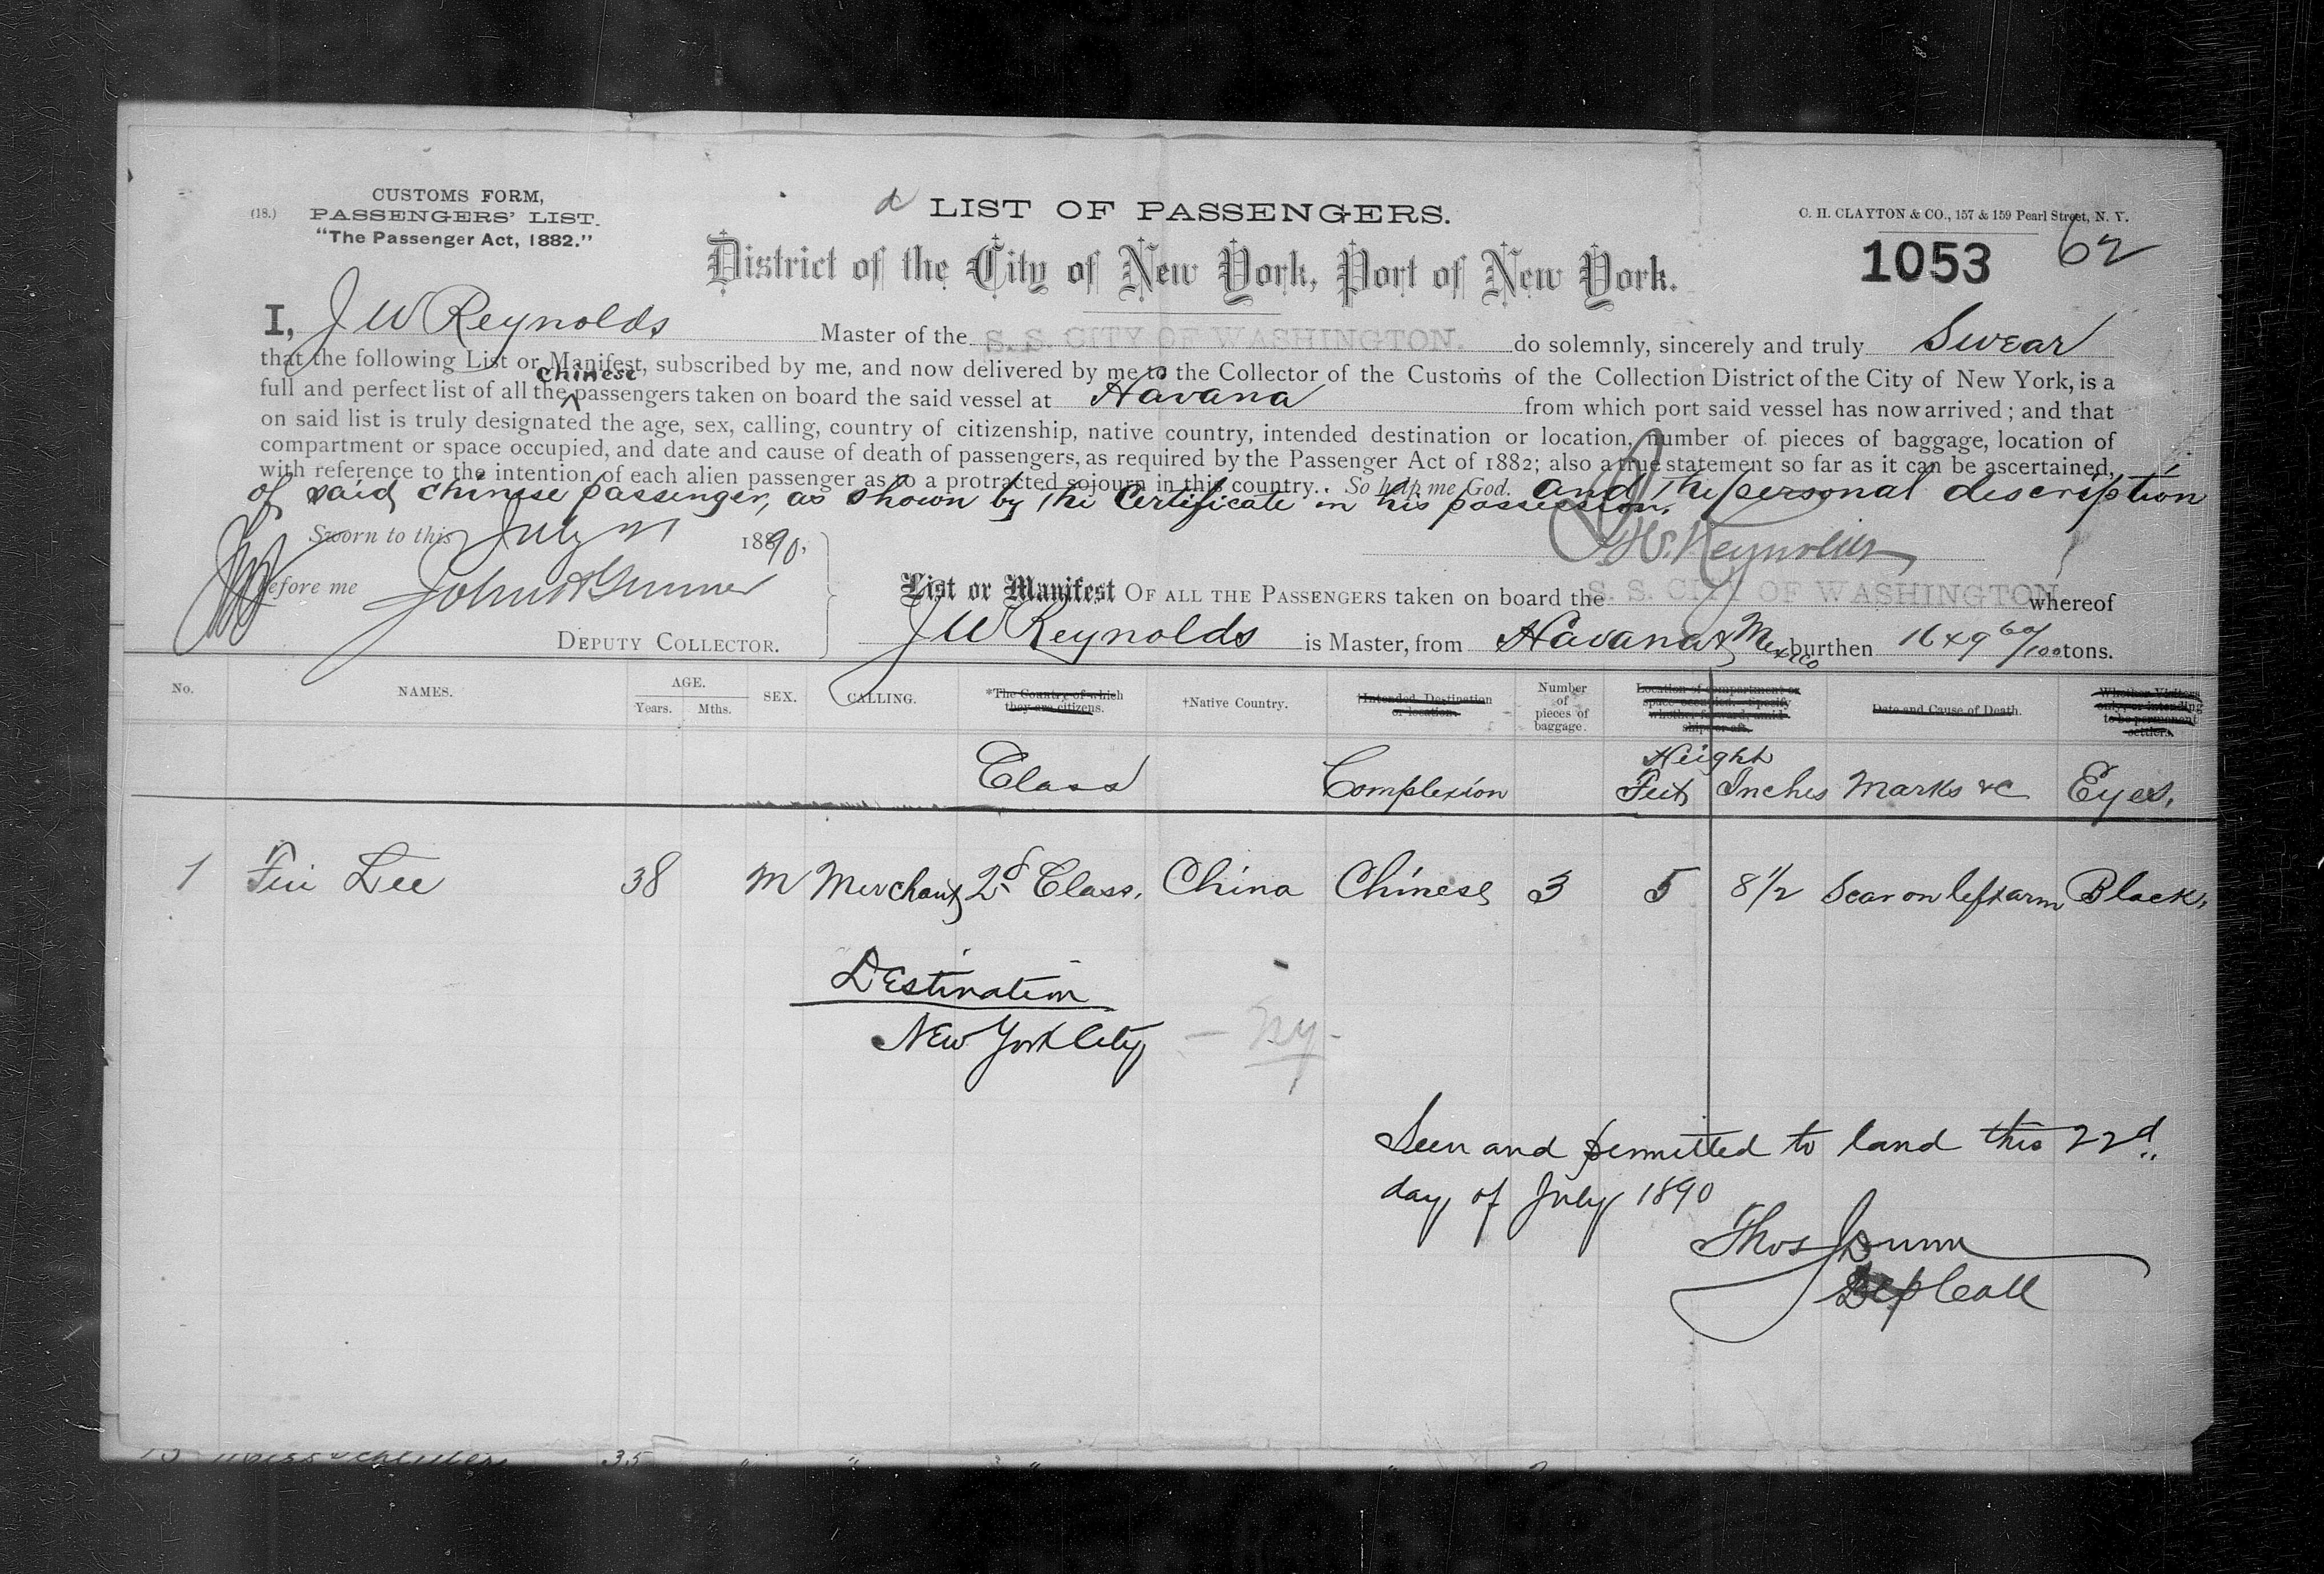 CUSTOMS FORM,
(18.) PASSENGERS' LIST.
"The Passenger Act, 1882."
LIST OF PASSENGERS.
District of the City of New York, Port of New York.
C. H. CLAYTON & CO., 157 & 159 Pearl Street, N. Y.
1053 62
I, J W Reynolds Master of the S. S. CITY OF WASHINGTON. do solemnly, sincerely and truly Swear
that the following List or Manifest, subscribed by me, and now delivered by me to the Collector of the Customs of the Collection District of the City of New York, is a
full and perfect list of all the Chinese passengers taken on board the said vessel at Havana from which port said vessel has now arrived; and that
on said list is truly designated the age, sex, calling, country of citizenship, native country, intended destination or location, number of pieces of baggage, location of
compartment or space occupied, and date and cause of death of passengers, as required by the Passenger Act of 1882; also a true statement so far as it can be ascertained,
with reference to the intention of each alien passenger as to a protracted sojourn in this country. So help me God. and the personal description
of said chinese passenger, as shown by the Certificate in his possession.
Sworn to this July 21 1890,
J W. Reynolds
Before me
DEPUTY COLLECTOR.
List or Manifest OF ALL THE PASSENGERS taken on board the S. S. CITY OF WASHINGTON whereof
J W Reynolds is Master, from Havana & Mexico burthen tons.
No. NAMES. AGE. Years. Mths. SEX. CALLING. *The Country of which they are citizens. †Native Country. Intended Destination or location. Number of pieces of baggage. Location of compartment or space occupied. Specify whether forward, amidships or aft. Date and Cause of Death. Whether Visitors only, or intending to be permanent settlers.
Class Complexion Height Feet Inches Marks &c Eyes.
1 Fui Lee 38 M Merchant 2d Class. China Chinese 3 5 8 1/2 Scar on left arm Black.
Destination
New York City - NY -
Seen and permitted to land this 22d
day of July 1890
Thos J Dunn
Dep Coll
35